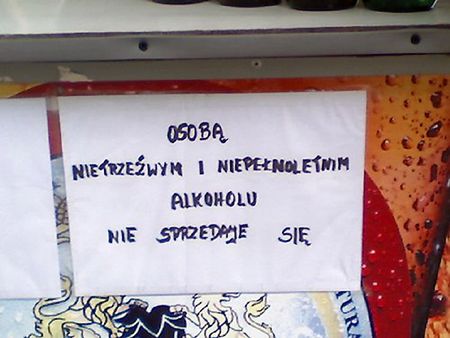 OSOBĄ
NIETRZEŹWYM I NIEPEŁNOLETNIM
ALKOHOLU
NIE SPRZEDAJE SIĘ
TURA